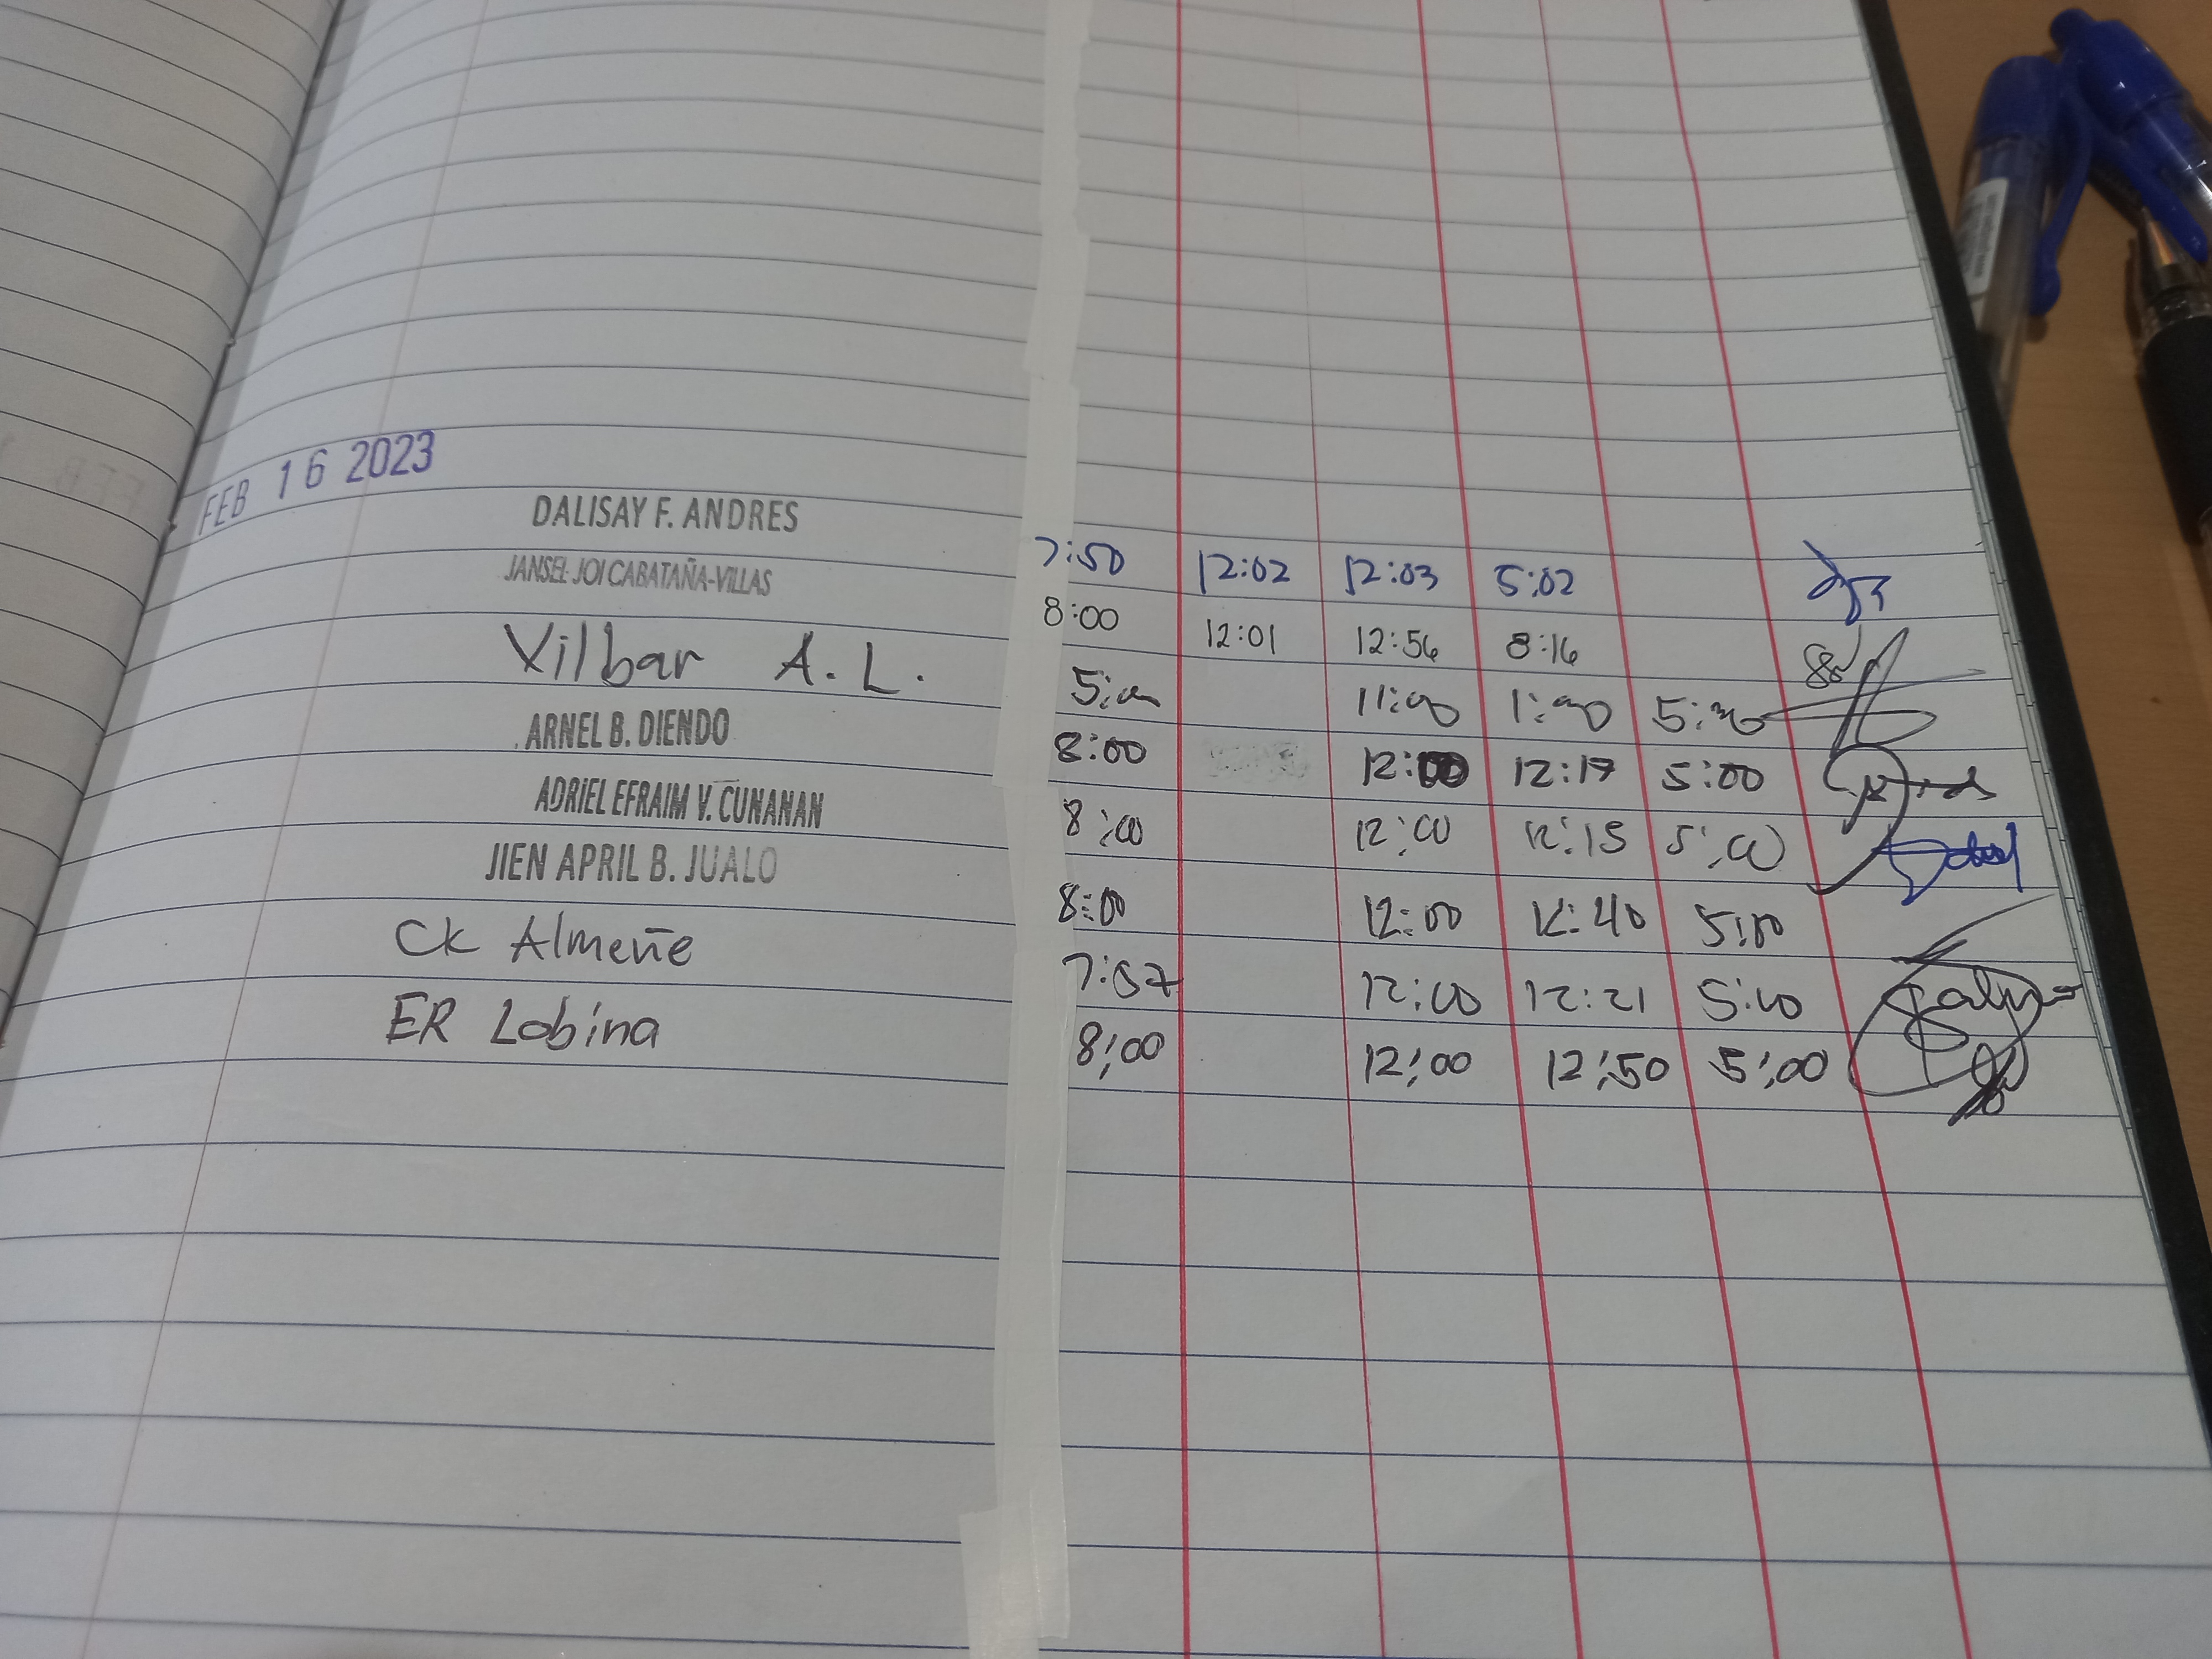 FEB 16 2023
DALISAY F. ANDRES 7:50 12:02 12:03 5:02
JANSEL JOI CABATAÑA-VILLAS 8:00 12:01 12:56 8:16
Vilbar A.L. 5:00 11:00 1:00 5:30
ARNEL B. DIENDO 8:00 12:00 12:17 5:00
ADRIEL EFRAIM V. CUNANAN 8:00 12:00 12:15 5:00
JIEN APRIL B. JUALO 8:00 12:00 12:40 5:00
CK Almeñe 7:57 12:00 12:21 5:00
ER Lobina 8:00 12:00 12:50 5:00